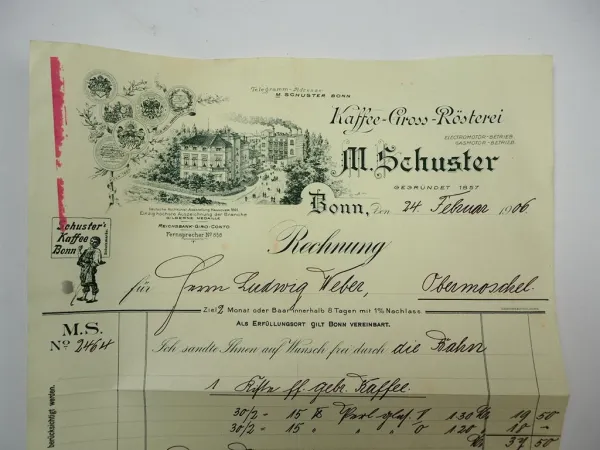 Telegramm-Adresse:
M. SCHUSTER BONN
Kaffee-Gross-Rösterei
ELECTROMOTOR-BETRIEB
GASMOTOR-BETRIEB
M. Schuster
GEGRÜNDET 1857
Einzig höchste Auszeichnung der Branche
SILBERNE MEDAILLE
REICHSBANK-GIRO-CONTO
Fernsprecher No 658
Bonn, den 24. Februar 1906.
Schuster's
Kaffee
Bonn
Rechnung
für Herrn Ludwig Weber, Obermoschel.
Ziel 2 Monat oder Baar innerhalb 8 Tagen mit 1% Nachlass
ALS ERFÜLLUNGSORT GILT BONN VEREINBART.
M.S.
No 2464
Ich sandte Ihnen auf Wunsch frei durch die Bahn
1 Kiste ff. gebr. Kaffee.
30/2 = 15 Perl glas. V 130 19 50
30/2 = 15 " " " O 120 18 -
37 50
berücksichtigt werden.